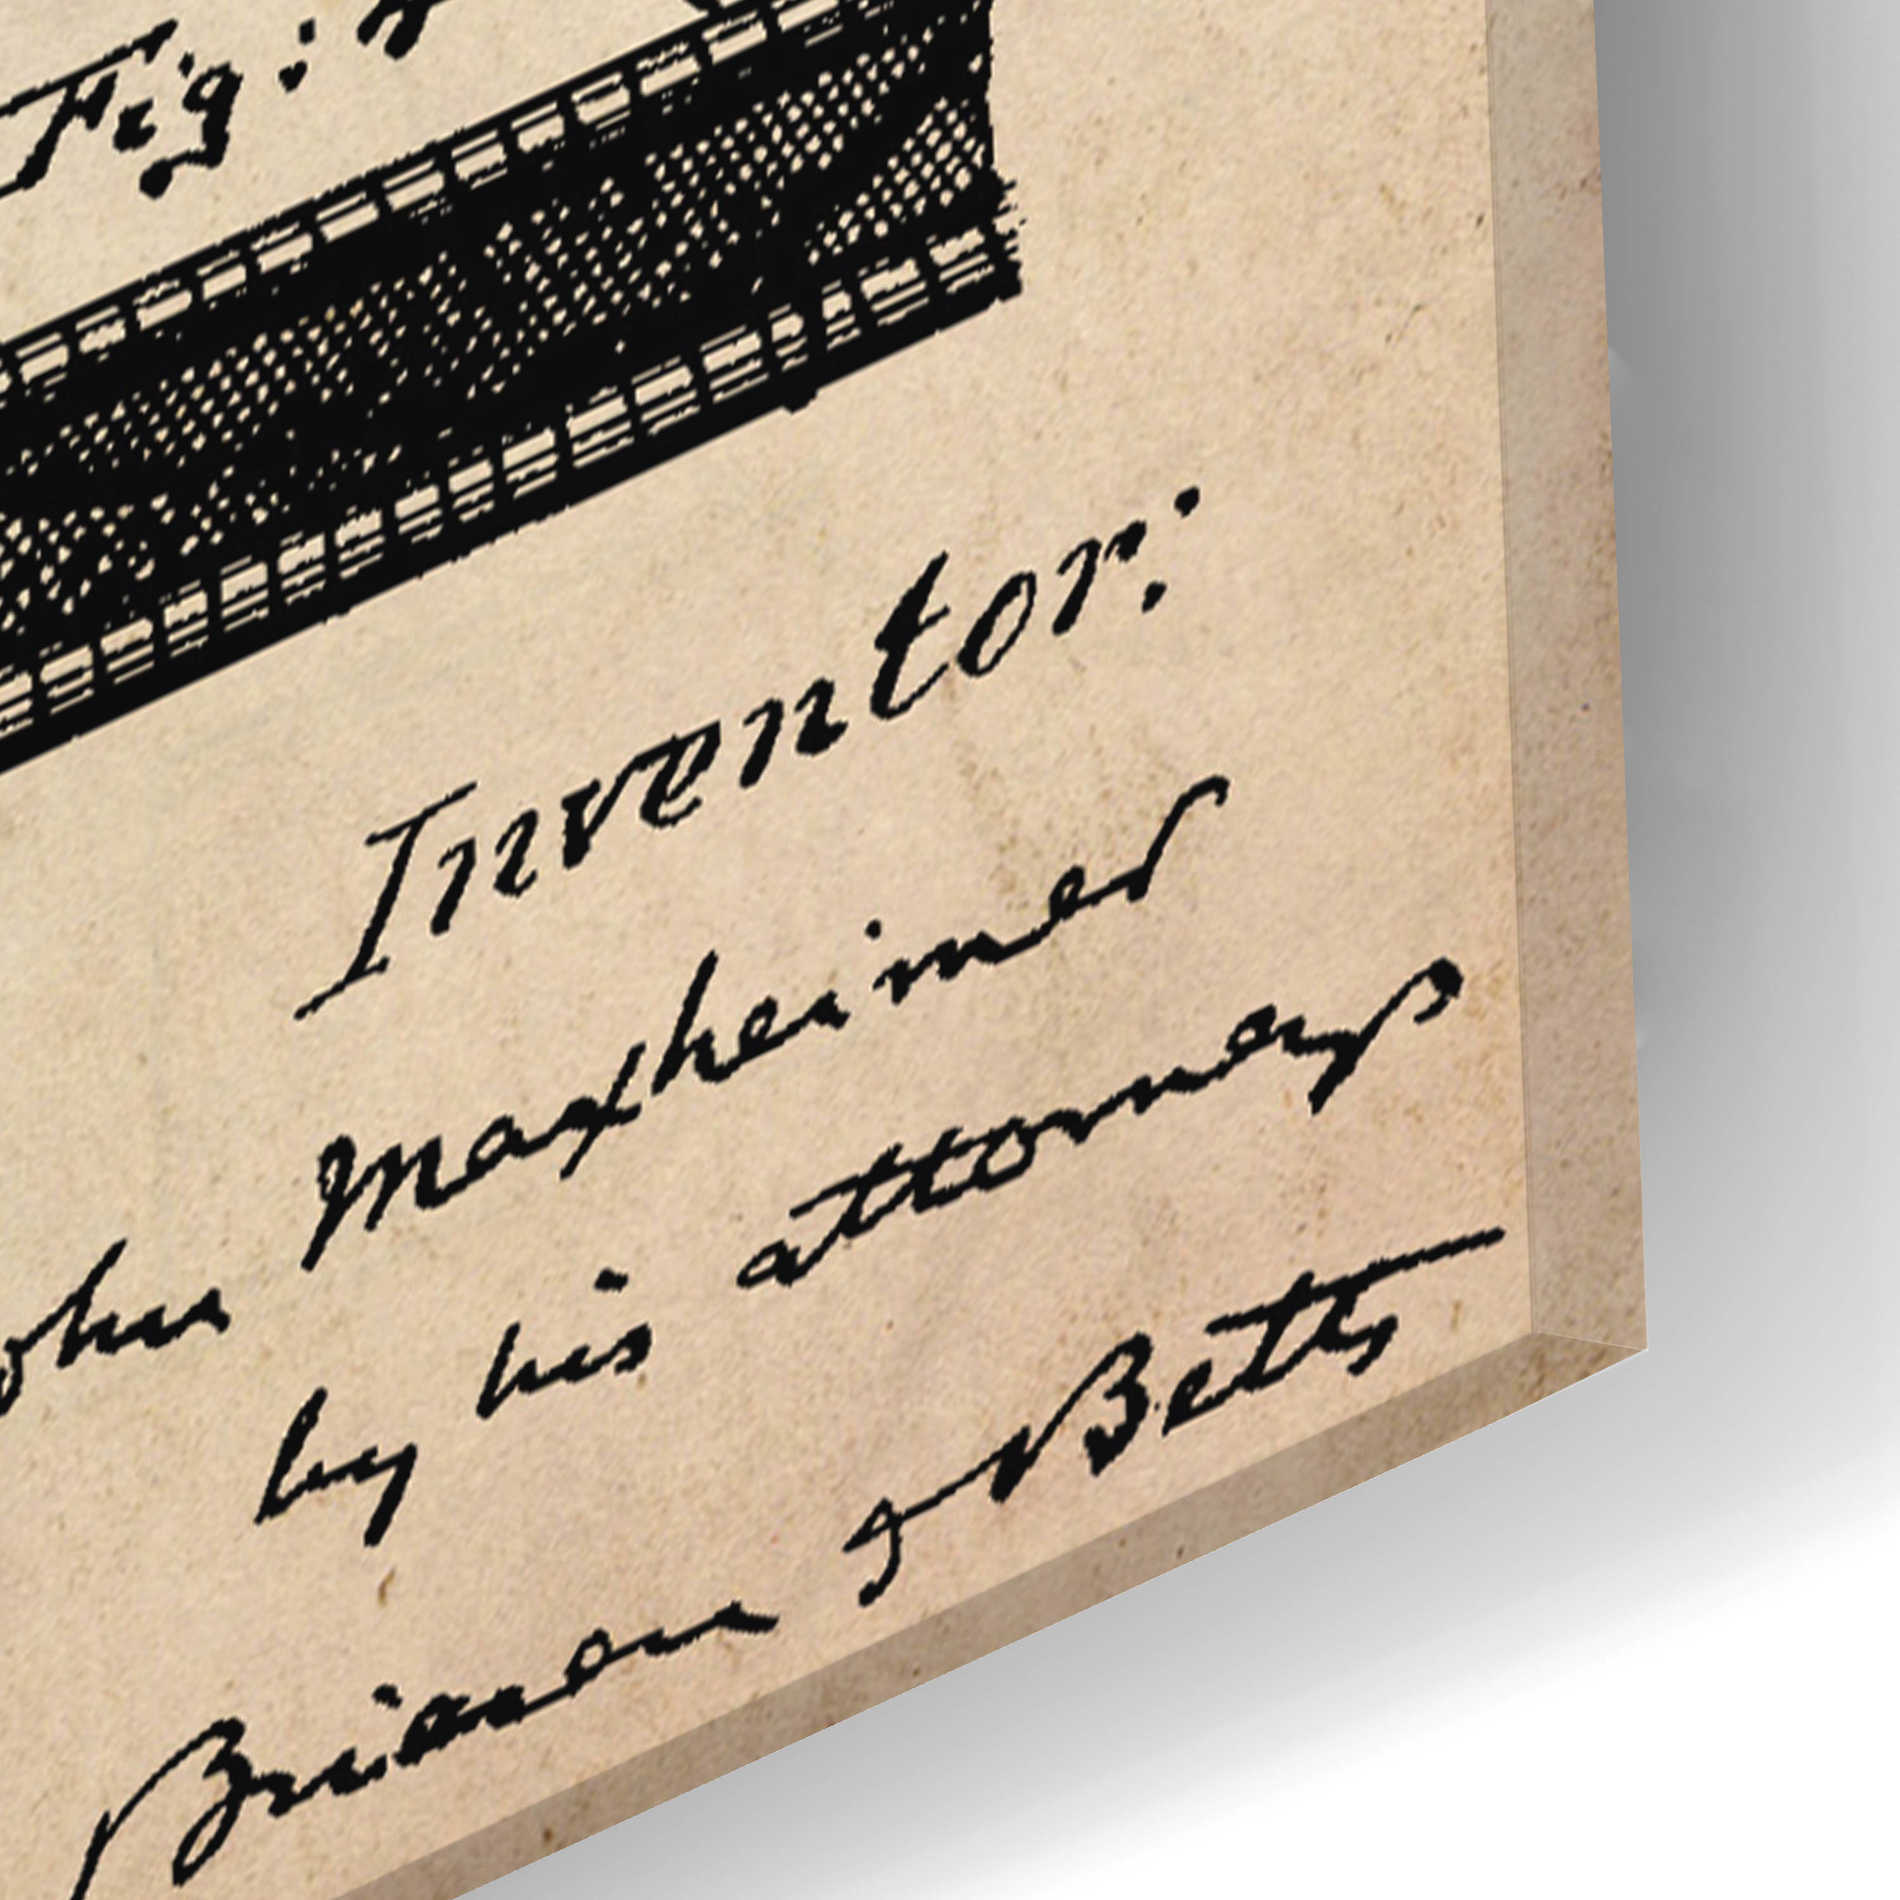 Fig:
Inventor:
John Maxheimer
by his attorneys
Briesen & Betts